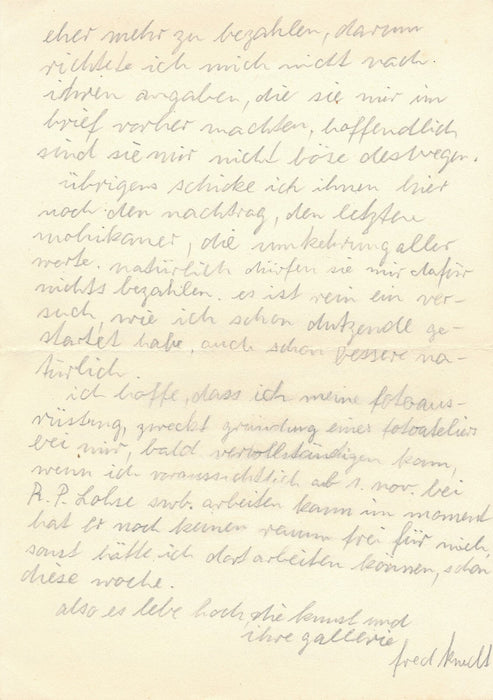 eher mehr zu bezahlen, darum
richtete ich mich nicht nach
ihren angaben, die sie mir im
brief vorher machten, hoffendlich
sind sie mir nicht böse deswegen.
übrigens schicke ich ihnen hier
noch den nachtrag, den letzten
mohikaner, die umkehrung aller
werte. natürlich dürfen sie mir dafür
nichts bezahlen. es ist rein ein ver-
such, wie ich schon dutzende ge-
startet habe, auch schon bessere na-
türlich.
ich hoffe, dass ich meine fotoaus-
rüstung, zweckt gründung eines fotoateliers
bei mir, bald vervollständigen kann,
wenn ich voraussichtlich ab 1. nov. bei
R. P. Lohse swb. arbeiten kann im moment
hat er noch keinen raum frei für mich,
sonst hätte ich dort arbeiten können, schon
diese woche.
also es lebe hoch, die kunst und
ihre gallerie
fred knecht